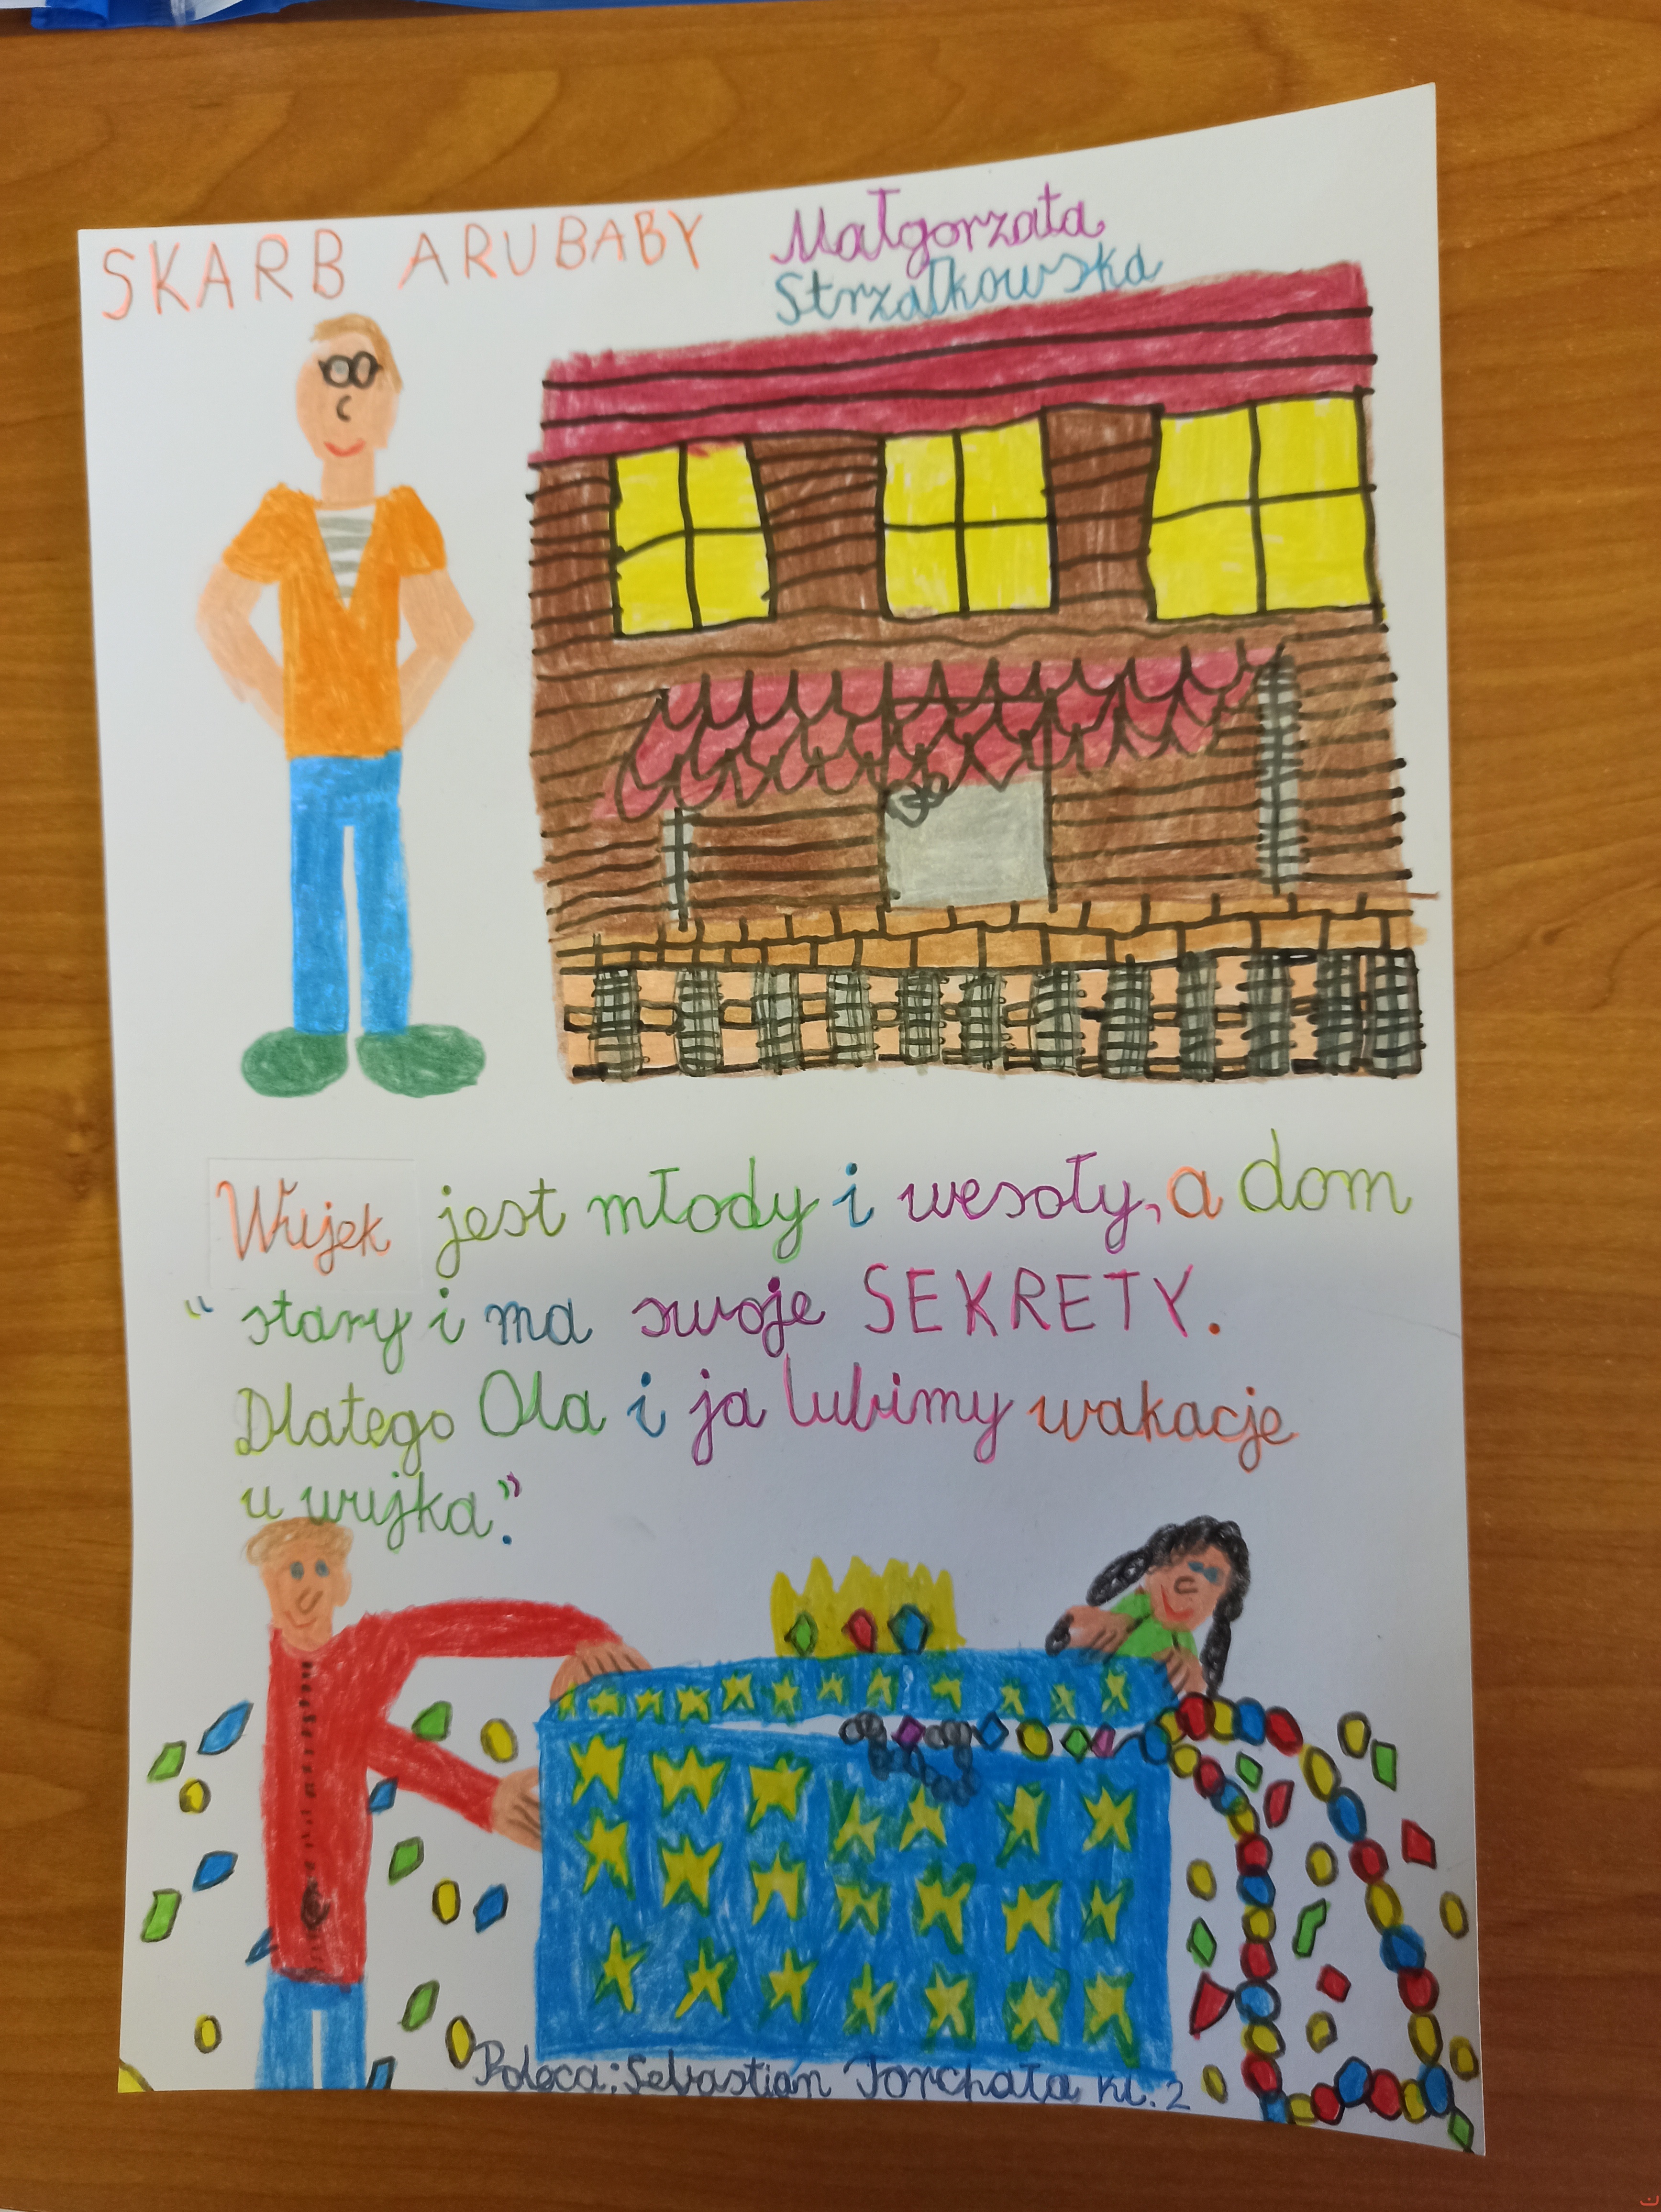 SKARB ARUBABY
Małgorzata
Strzałkowska
Wujek jest młody i wesoły, a dom
" stary i ma swoje SEKRETY.
Dlatego Ola i ja lubimy wakacje
u wujka."
Poleca: Sebastian Torchała kl. 2